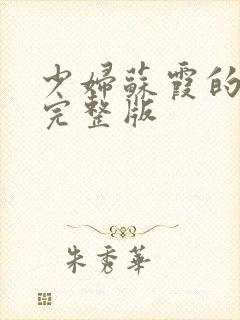 少婦蘇霞的
完整版
朱秀華